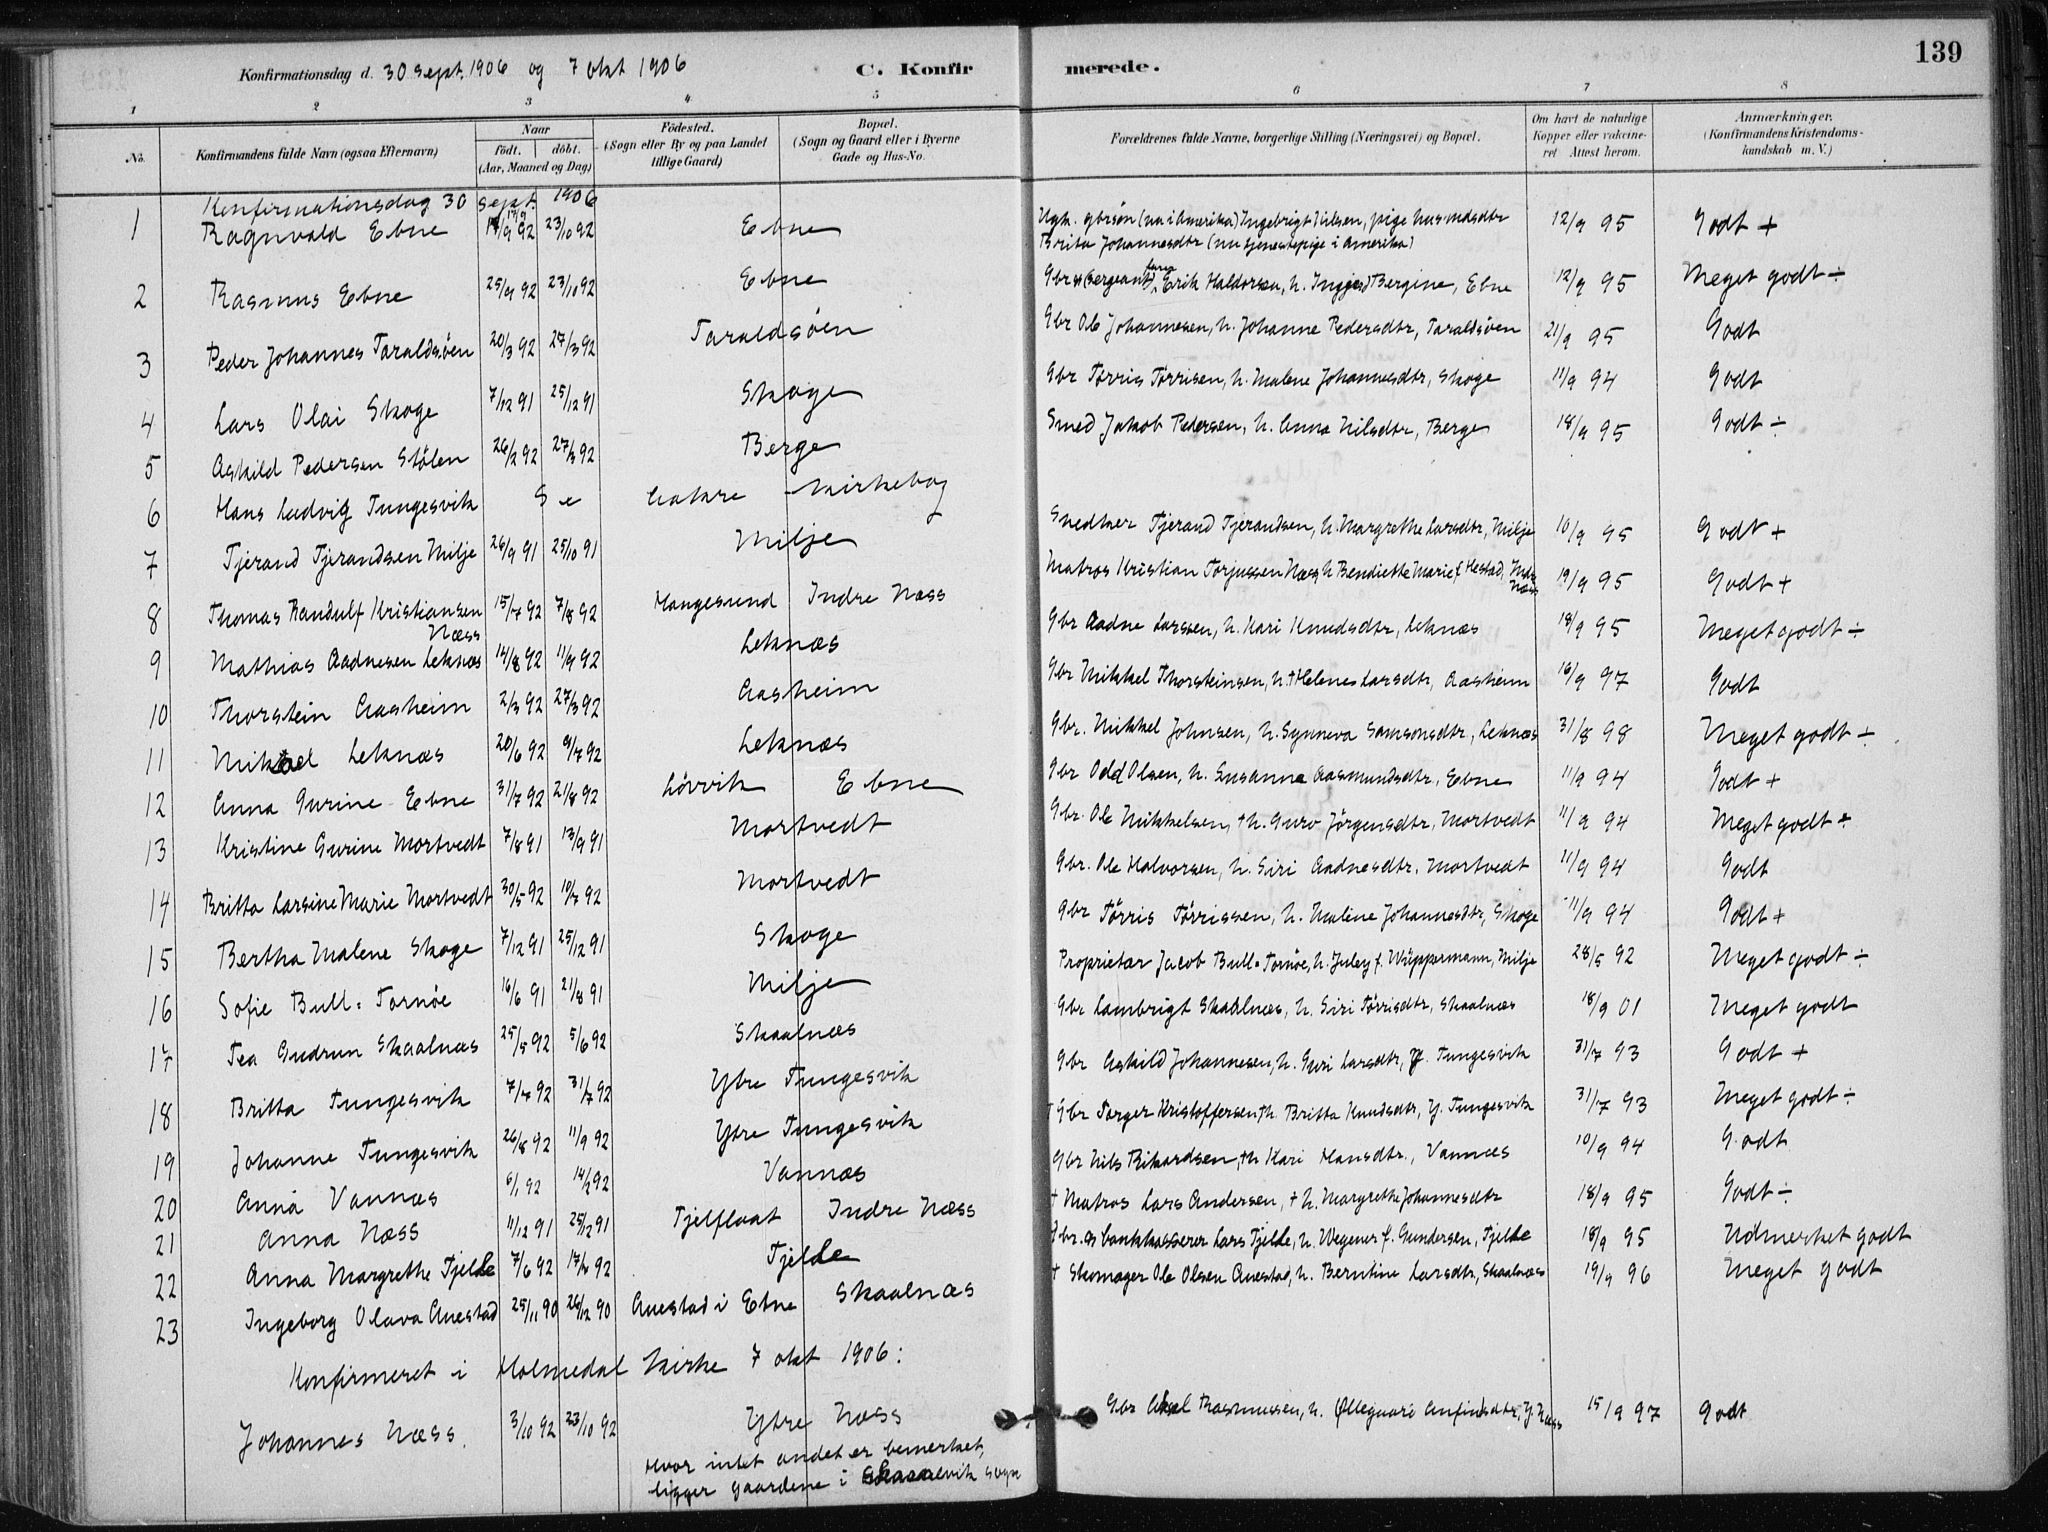 139
Konfirmationsdag d. 30 Sept. 1906 og 7 okt 1906 C. Konfir merede.
1 2 3 4 5 6 7 8
No. Konfirmandens fulde Navn (ogsaa Efternavn) Naar födt. döbt. (Aar, Maaned og Dag) Födested. (Sogn eller By og paa Landet tillige Gaard) Bopæl. (Sogn og Gaard eller i Byerne Gade og Hus-No. Forældrenes fulde Navne, borgerlige Stilling (Næringsvei) og Bopæl. Om havt de naturlige Kopper eller vakcineret Attest herom. Anmærkninger. (Konfirmandens Kristendomskundskab m. V.)
Konfirmationsdag 30 sept. 1906
1 Ragnvald Ebne 17/9 92 23/10 92 Ebne Ugk. gbrsön (nu i Amerika) Ingebrigt Nilsen, pige husmdsdtr Brita Johannesdtr (nu tjenestepige i Amerika) 12/9 95 Godt +
2 Rasmus Ebne 25/9 92 23/10 92 Ebne Gbr (Sergeant) Erik Haldorsen, h. Bergine, Ebne 12/9 95 Meget godt ÷
3 Peder Johannes Taraldsöen 20/3 92 27/3 92 Taraldsöen Gbr Ole Johannesen, h. Johanne Pedersdtr, Taraldsöen 21/9 95 Godt
4 Lars Olai Skoge 7/12 91 25/12 91 Skoge Gbr Törris Törrisen, h. Malene Johannesdtr, Skoge 11/9 94 Godt
5 Askild Pedersen Stölen 26/2 92 27/3 92 Berge Smed Jakob Pedersen, h. Anna Nilsdtr, Berge 18/9 95 Godt ÷
6 Hans Ludvig Tungesvik Se Aakre kirkebog
7 Tjerand Tjerandsen Milje 26/9 91 25/10 91 Milje Snedker Tjerand Tjerandsen, h. Margrethe Larsdtr, Milje 10/9 95 Godt +
8 Thomas Randulf Kristiansen Næss 15/7 92 7/8 92 Haugesund Indre Næss Matros Kristian Torjussen Næss, h. Bendiette Marie f. Hestad, Indr Næss 19/9 95 Godt +
9 Mathias Aadnesen Leknæs 14/8 92 11/9 92 Leknæs Gbr Aadne Larssen, h. Kari Knudsdtr, Leknæs 18/9 95 Meget godt ÷
10 Thorstein Aasheim 2/3 92 27/3 92 Aasheim Gbr Mikkel Thorsteinsen, h. + Helene Larsdtr, Aasheim 16/9 97 Godt
11 Mikael Leknæs 20/6 92 9/7 92 Leknæs Gbr. Mikkel Johnsen, h. Synneva Samsonsdtr, Leknæs 31/8 98 Meget godt ÷
12 Anna Gurine Ebne 31/7 92 21/8 92 Lövvik Ebne Gbr Odd Olsen, h. Susanna Aasmundsdtr, Ebne 11/9 94 Godt +
13 Kristine Gurine Mortvedt 7/8 91 13/9 91 Mortvedt Gbr. Ole Mikkelsen, + h. Guro Jörgensdtr, Mortvedt 11/9 94 Meget godt ÷
14 Britta Larsine Marie Mortvedt 30/5 92 10/7 92 Mortvedt Gbr. Ole Halvorsen, h. Siri Aadnesdtr. Mortvedt 11/9 94 Godt
15 Bertha Malene Skoge 7/12 91 25/12 91 Skoge Gbr Törris Törrissen, h. Maline Johannesdtr, Skoge 11/9 94 Godt +
16 Sofie Bull-Tornöe 16/6 91 21/8 91 Milje Proprietær Jacob Bull-Tornöe, h. Juley f. Wüppermann, Milje 28/5 92 Meget godt ÷
17 Tea Gudrun Skaalnæs 25/5 92 5/6 92 Skaalnæs Gbr Lambrigt Skaalnæs, h. Siri Törrisdtr, Skaalnæs 18/9 01 Meget godt
18 Britta Tungesvik 7/7 92 31/7 92 Ytre Tungesvik Gbr Askild Johannesen, h. Guri Larsdtr, Y. Tungesvik 31/7 93 Godt +
19 Johanne Tungesvik 26/8 92 11/9 92 Ytre Tungesvik + Gbr Torger Kristoffersen, h. Britta Knudsdtr, Y. Tungesvik 31/7 93 Meget godt ÷
20 Anna Vannæs 6/1 92 14/2 92 Vannæs Gbr Nils Rikardsen, + h Kari Hansdtr, Vannæs 10/9 94 Godt
21 Anna Næss 11/12 91 25/12 91 Tjelflaat Indre Næss + Matros Lars Andersen, + h. Margrethe Johannesdtr 18/9 95 Godt ÷
22 Anna Margrethe Tjelde 7/6 92 17/6 92 Tjelde Gbr. og bankkasserer Lars Tjelde, h. Wegener f. Gundersen, Tjelde 18/9 95 Udmerket godt
23 Ingeborg Olava Auestad 25/11 90 26/12 90 Auestad i Etne Skaalnæs + Skomager Ole Olsen Auestad, h. Berntine Larsdtr, Skaalnæs 19/9 96 Meget godt
Konfirmeret i Holmedal kirke 7 okt 1906:
Johannes Næss. 3/10 92 23/10 92 Ytre Næss Gbr Aksel Rasmussen, h. Öllegaard Anfindsdtr, Y. Næss 15/9 97 Godt
Hvor intet andet er bemerket,
ligger gaardene i Skaanevik sogn